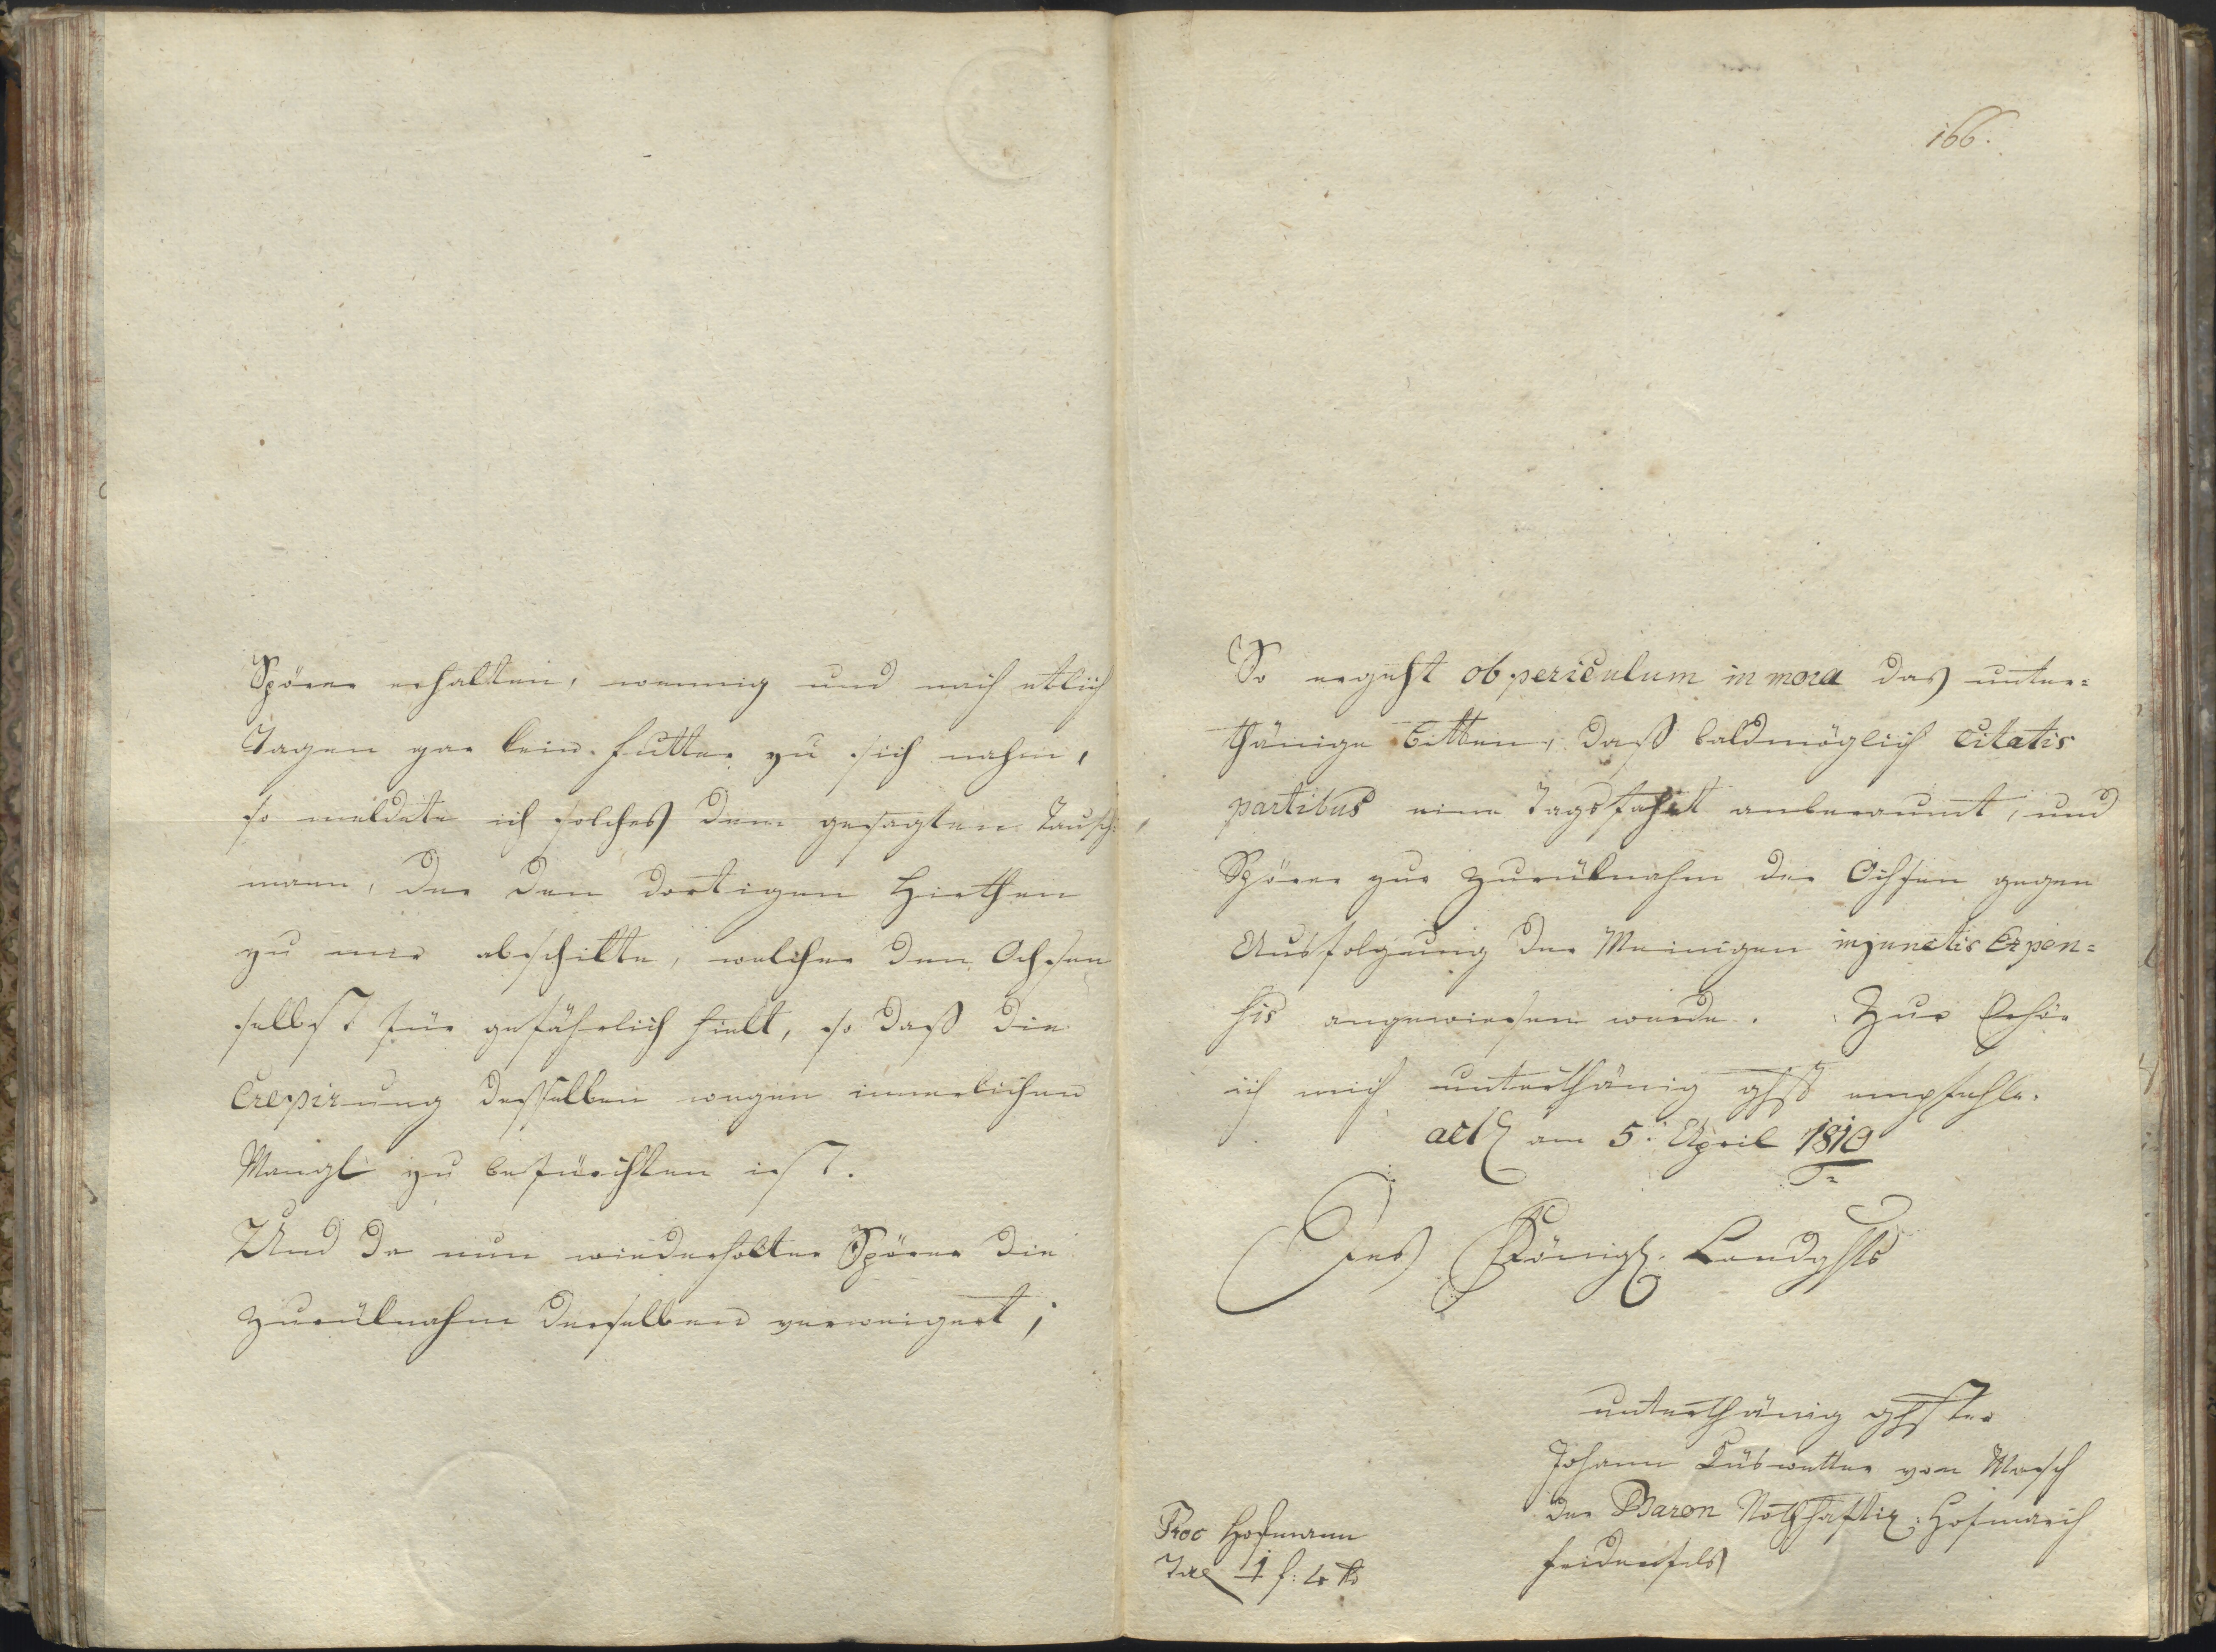 Spörer erhalten, wennig und nach etlich
Tagen gar kein Futter zu sich nahm,
so meldete ich solches dem gesagten Tausch-
mann, der den dortigen Hirthen
zu mir abschikte, welcher den Ochsen
selbst für gefährlich hielt, so daß die
Crepirung desselben wegen innerlichen
Mangl zu befürchten ist.
Und da nun wiederholter Spörer die
Zurüknahm derselben verweigert;
166.
So ergeht ob periculum in mora das unter=
thänige bitten, daß baldmöglich citatis
partibus eine Tagsfahrt anberaumt, und
Spörer zur Zurüknahm der Ochsen gegen
Ausfolgung der Meinigen injunctis Expen=
sis angewiesen werde. Zur Erhör
ich mich unterthänig ghst empfehle.
act am 5. April 1810
Des Königl. Landghts
unterthänig ghster
Johann von
der Baron Nothhaftig: Hofmarch
Fridenfels
Proc Hofmann
Tax 1 f: 4